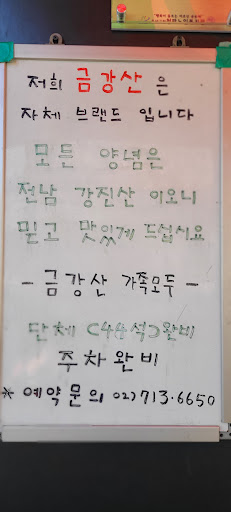 저희 금강산은
자체 브랜드 입니다
모든 양념은
전남 강진산 이오니
믿고 맛있게 드십시요
- 금강산 가족모두 -
단체 <44석> 완비
주차완비
* 예약문의 02)713.6650